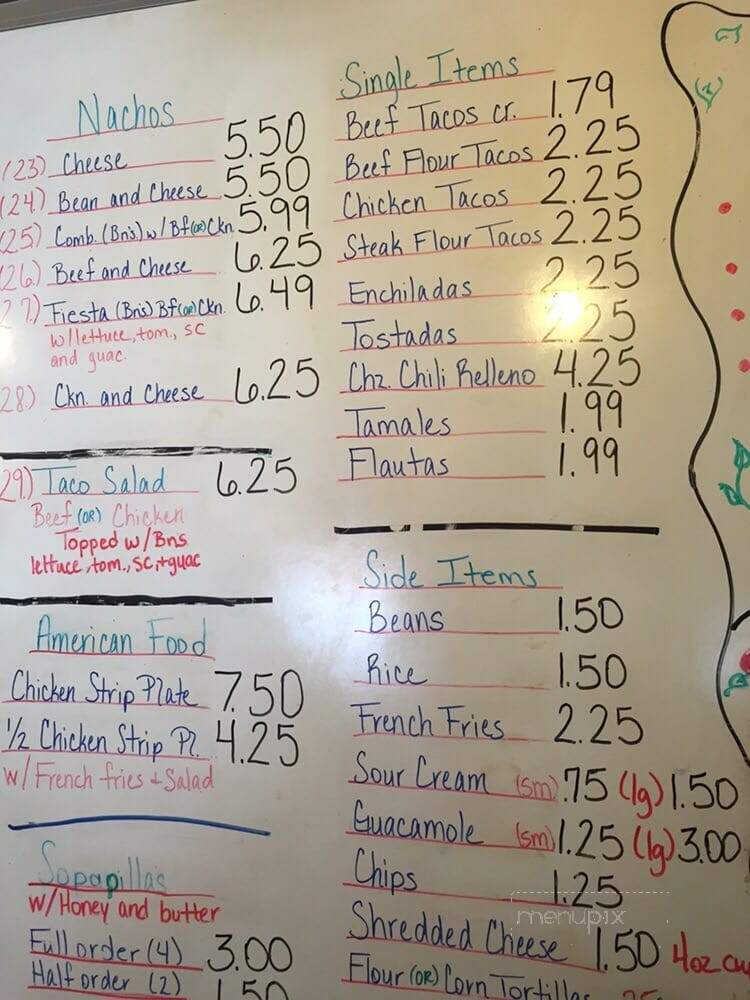 Nachos
(23) Cheese 5.50
(24) Bean and Cheese 5.50
(25) Comb. (Bns.) w/ Bf (or) Ckn. 5.99
(26.) Beef and Cheese 6.25
27.) Fiesta (Bns) Bf (or) Ckn. 6.49
w/lettuce, tom., sc
and guac.
28.) Ckn. and Cheese 6.25
29.) Taco Salad 6.25
Beef (OR) Chicken
Topped w/Bns
lettuce, tom., sc, + guac
American Food
Chicken Strip Plate 7.50
1/2 Chicken Strip Pl. 4.25
w/ French fries + Salad
Sopapillas
w/Honey and butter
Full order (4) 3.00
Half order (2) 1.50
Single Items
Beef Tacos cr. 1.79
Beef Flour Tacos 2.25
Chicken Tacos 2.25
Steak Flour Tacos 2.25
Enchiladas 2.25
Tostadas 2.25
Chz. Chili Relleno 4.25
Tamales 1.99
Flautas 1.99
Side Items
Beans 1.50
Rice 1.50
French Fries 2.25
Sour Cream (sm) .75 (lg) 1.50
Guacamole (sm) 1.25 (lg) 3.00
Chips 1.25
menupix
Shredded Cheese 1.50 4oz cu
Flour (OR) Corn Tortillas